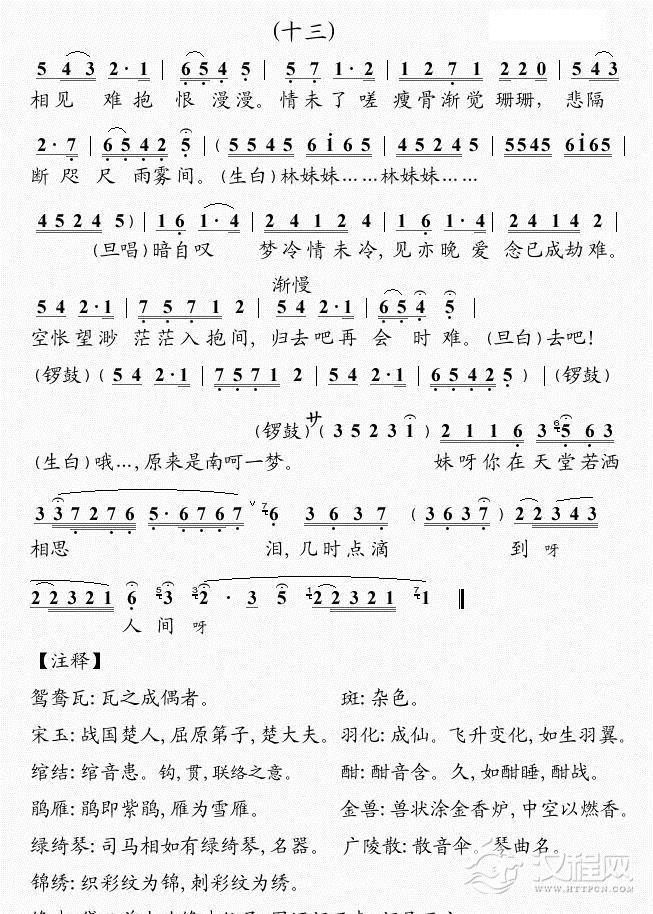 (十三)
5 4 3 2·1 | 6 5 4 5 | 5 7 1·2 | 1 2 7 1 2 2 0 | 5 4 3
相见 难抱 恨 漫漫。情未了 嗟 瘦骨渐觉 珊珊, 悲隔
2·7 | 6 5 4 2 5 | (5 5 4 5 6 i 6 5 | 4 5 2 4 5 | 5545 6i65 |
断 咫 尺 雨雾间。(生白)林妹妹……林妹妹……
4 5 2 4 5) | 1 6 1·4 | 2 4 1 2 4 | 1 6 1·4 | 2 4 1 4 2 |
(旦唱)暗自叹 梦冷情未冷,见亦晚 爱 念已成劫难。
渐慢
5 4 2·1 | 7 5 7 1 2 | 5 4 2·1 | 6 5 4 5 |
空怅望渺 茫茫入抱间, 归去吧再 会 时难。(旦白)去吧!
(锣鼓) (5 4 2·1 | 7 5 7 1 2 | 5 4 2·1 | 6 5 4 2 5) | (锣鼓)
(锣鼓) サ (3 5 2 3 1) 2 1 1 6 3 6 5 6 3
(生白)哦…,原来是南呵一梦。 妹呀你在天堂若洒
3 3 7 2 7 6 5·6 7 6 7 ∨ 7 6 3 6 3 7 (3 6 3 7) 2 2 3 4 3
相思 泪, 几时点滴 到 呀
2 2 3 2 1 6 5 3 3 2·3 5 1 2 2 3 2 1 7 1
人 间 呀
【注释】
鸳鸯瓦: 瓦之成偶者。 斑: 杂色。
宋玉: 战国楚人, 屈原第子, 楚大夫。 羽化: 成仙。飞升变化, 如生羽翼。
绾结: 绾音患。钩, 贯, 联络之意。 酣: 酣音含。久, 如酣睡, 酣战。
鹃雁: 鹃即紫鹃, 雁为雪雁。 金兽: 兽状涂金香炉, 中空以燃香。
绿绮琴: 司马相如有绿绮琴, 名器。 广陵散: 散音伞。琴曲名。
锦绣: 织彩纹为锦, 刺彩纹为绣。
汉程网
WWW.HTTPCN.COM